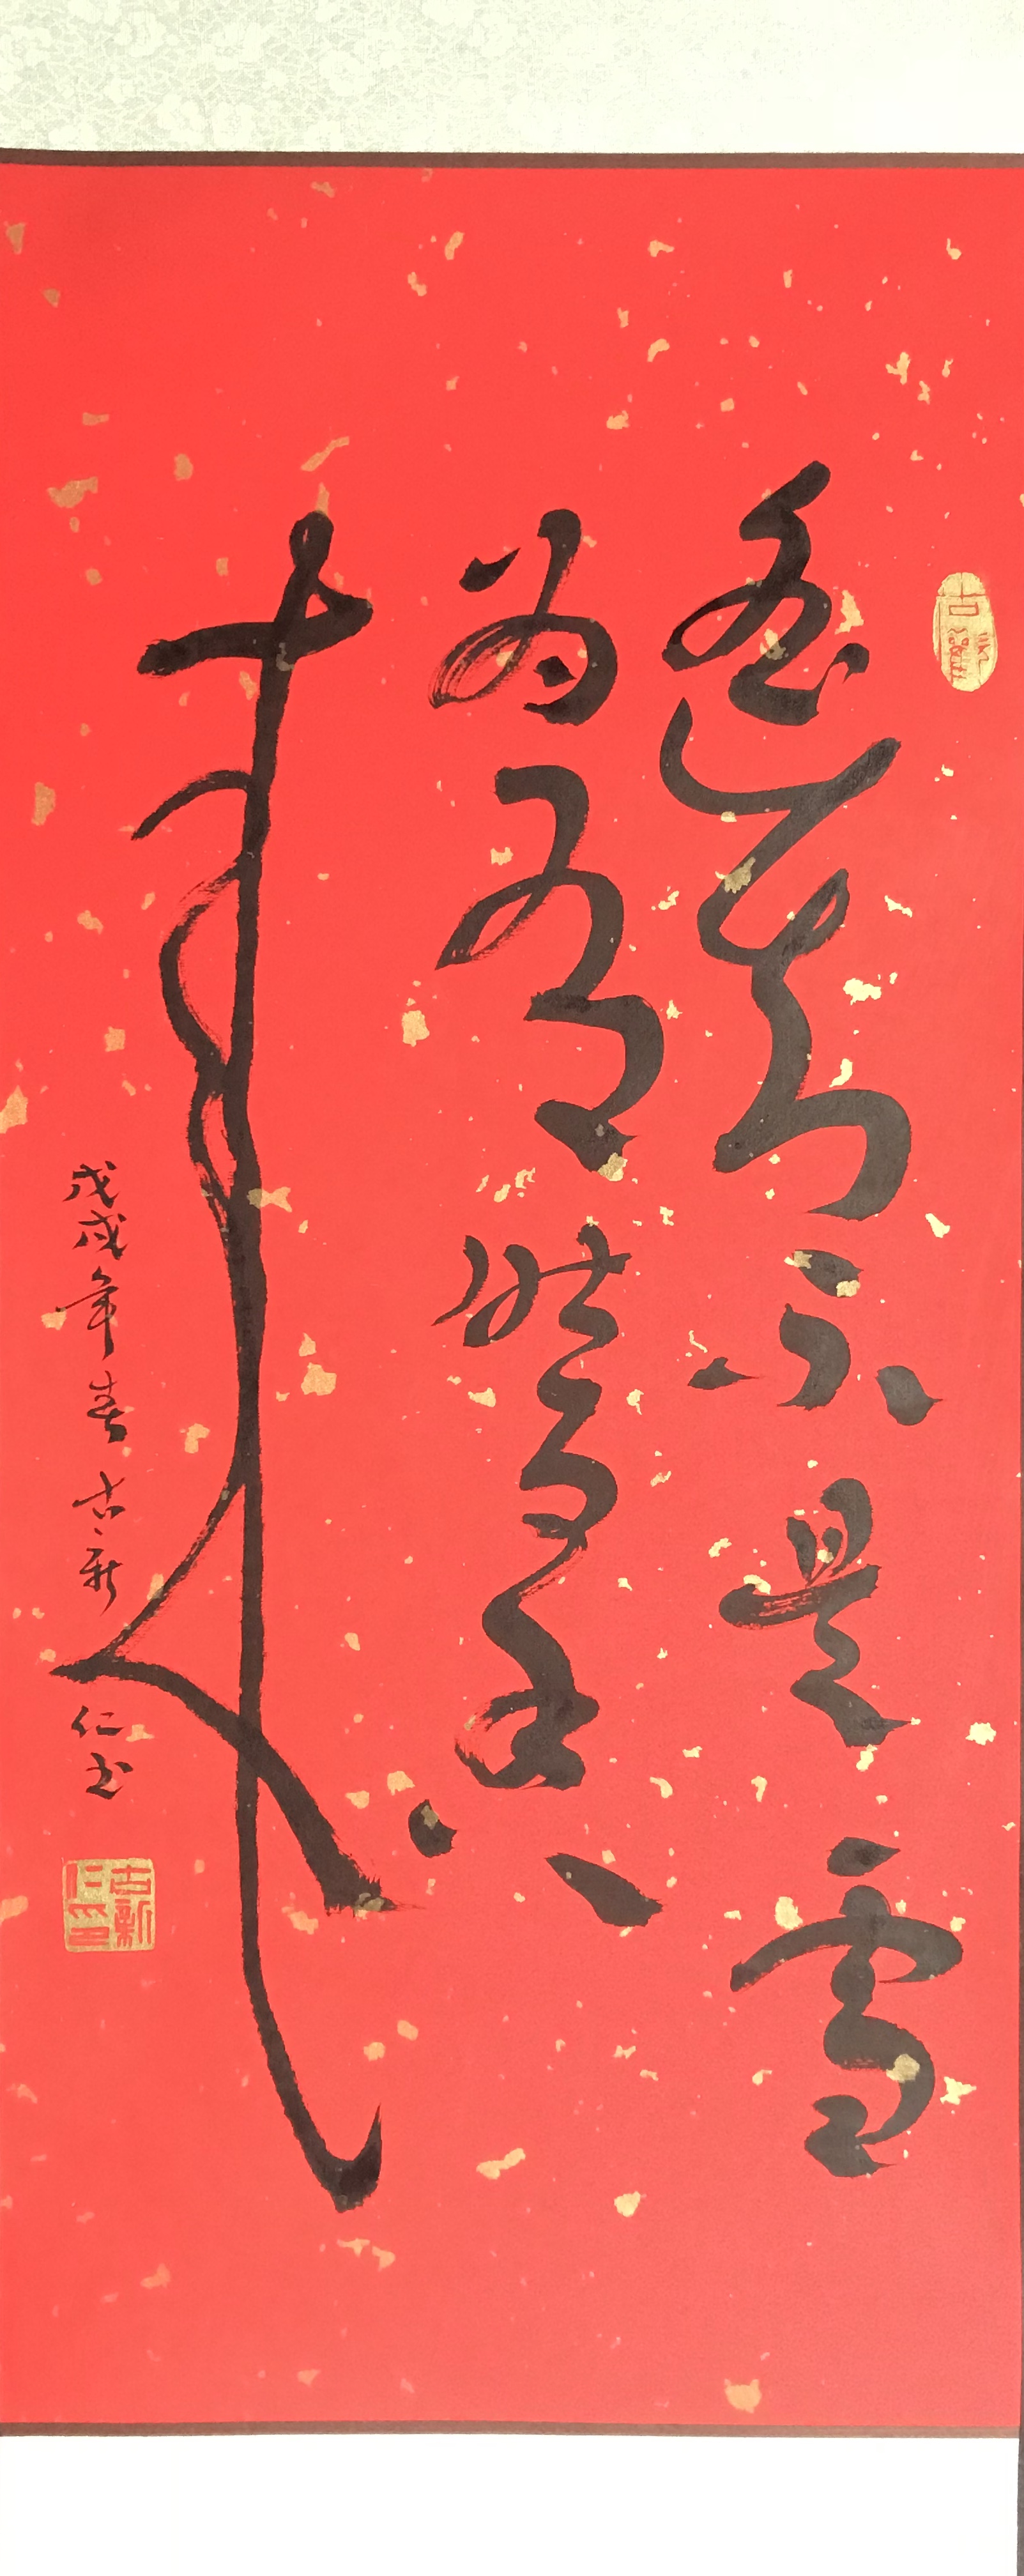 遥知不是雪
为有暗香
来
戊戌年春古新仁书
古新仁印